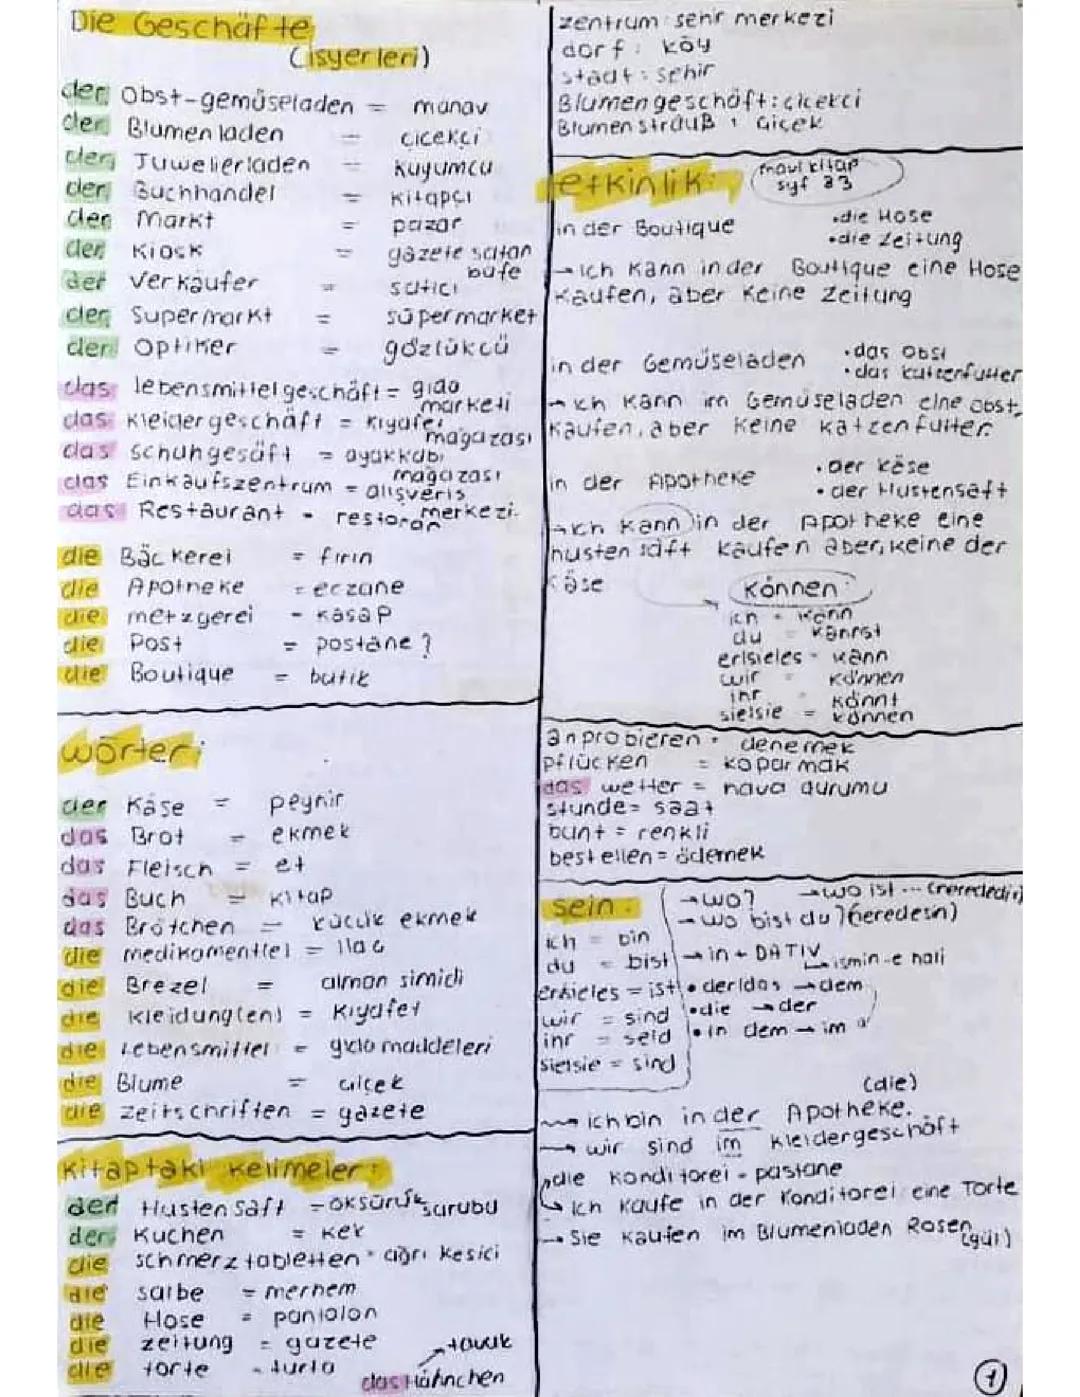 Die Geschäfte
(isyerleri)
der Obst-gemüseladen = manav
der Blumenladen = cicekçi
der Juwelierladen = kuyumcu
der Buchhandel = kitapçı
der Markt = pazar
der Kiosk = gazete satan
büfe
der Verkäufer = satıcı
der Supermarkt = süpermarket
der Optiker = gözlükcü
das lebensmittelgeschäft = gıda
marketi
das kleidergeschäft = kıyafet
magazası
das schuhgesäft = ayakkabı
magazası
das Einkaufszentrum = alışveris
merkezi
das Restaurant - restoran
die Bäckerei = fırın
die Apotheke = eczane
die metzgerei - kasap
die Post = postane ?
die Boutique = butik
wörter:
der Käse = peynir
das Brot = ekmek
das Fleisch = et
das Buch = kitap
das Brötchen = kücük ekmek
die medikament(e) = ilaç
die Brezel = alman simidi
die kleidung(en) = kıyafet
die Lebensmittel = gıda maddeleri
die Blume = çiçek
die zeitschriften = gazete
kitaptaki kelimeler:
der Hustensaft = öksürük surubu
der Kuchen = kek
die schmerztabletten = ağrı kesici
die salbe = merhem
die Hose = pantolon
die zeitung = gazete
die torte - turta
→ tavuk
das Hähnchen
zentrum: sehir merkezi
dorf: köy
stadt: sehir
Blumengeschäft: cicekci
Blumenstrauß : çiçek
etkinlik: mavi kitap
syf 83
in der Boutique •die Hose
•die Zeitung
→ ich kann in der Boutique eine Hose
kaufen, aber keine Zeitung
in der Gemüseladen •das Obst
•das katzenfutter
→ ich kann im Gemüseladen eine obst
kaufen, aber keine katzenfutter.
in der Apotheke •der käse
•der Hustensaft
→ ich kann in der Apotheke eine
hustensaft kaufen aber, keine der
käse
können:
ich = kann
du = kannst
er/sie/es - kann
wir = können
ihr = könnt
sie/sie = können
anprobieren = denemek
pflücken = koparmak
das wetter = hava durumu
stunde = saat
bunt = renkli
bestellen = ödemek
sein:
ich = bin
du = bist
er/sie/es = ist
wir = sind
ihr = seid
sie/sie = sind
→ wo? → wo ist ... (nerededir)
→ wo bist du? (neredesin)
→ in + DATIV → ismin -e hali
• der/das → dem
• die → der
• in dem → im
(die)
→ ich bin in der Apotheke.
→ wir sind im kleidergeschäft
die konditorei - pastane
→ ich kaufe in der Konditorei eine Torte
→ Sie kaufen im Blumenladen Rosen
(gül)
1